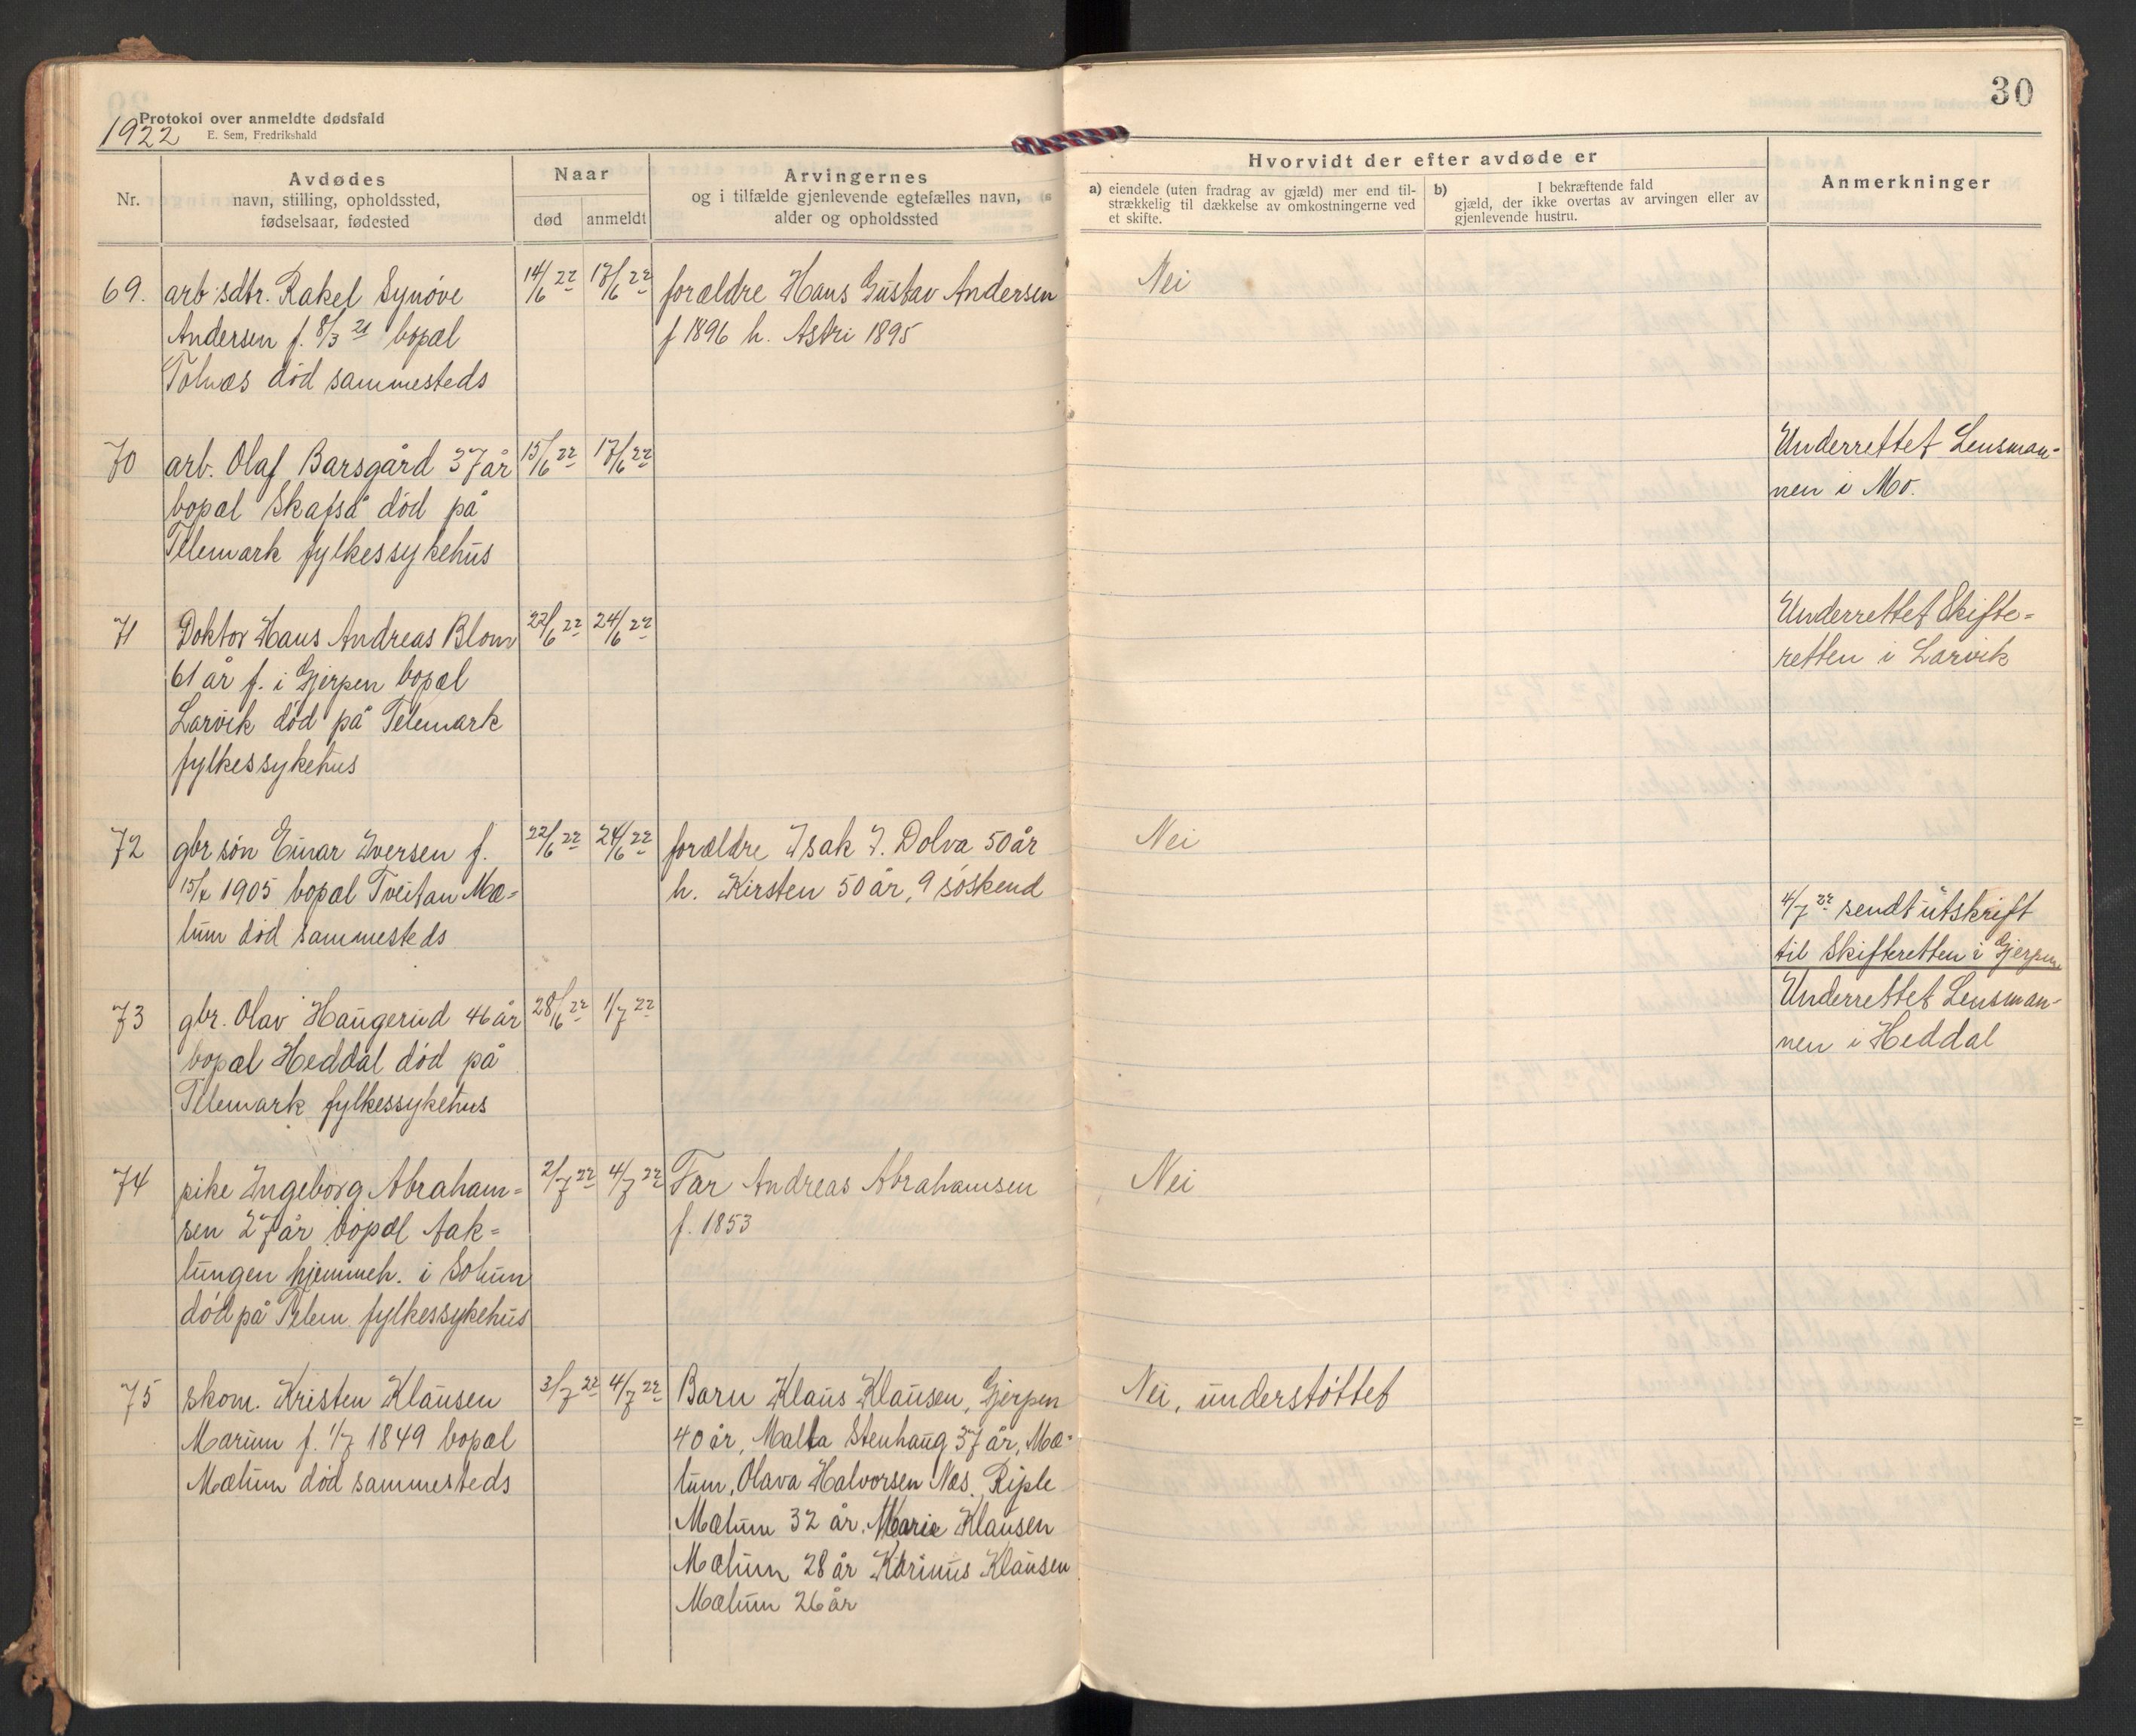 Protokol over anmeldte dødsfald
E. Sem, Fredrikshald
1922
30
Nr.
Avdødes
navn, stilling, opholdssted,
fødselsaar, fødested
Naar
død
anmeldt
Arvingernes
og i tilfælde gjenlevende egtefælles navn,
alder og opholdssted
Hvorvidt der efter avdøde er
a) eiendele (uten fradrag av gjæld) mer end til-
strækkelig til dækkelse av omkostningerne ved
et skifte.
b) I bekræftende fald
gjæld, der ikke overtas av arvingen eller av
gjenlevende hustru.
Anmerkninger
69. arb.sdtr. Rakel Synøve 14/6 22 17/6 22 forældre Hans Gustav Andersen Nei
Andersen f. 8/3 21 bopæl f 1896 h. Astri 1895
Tolnæs død sammesteds
70 arb. Olaf Barsgård 37 år 15/6 22 17/6 22 Underrettet Lensman-
bopæl Skafså død på nen i Mo.
Telemark fylkessykehus
71 Doktor Hans Andreas Blom 22/6 22 24/6 22 Underrettet Skifte=
61 år f. i Gjerpen bopæl retten i Larvik
Larvik død på Telemark
fylkessykehus
72 gbr søn Einar Iversen f. 22/6 22 24/6 22 forældre Isak I. Dolva 50 år Nei
1905 bopæl Tveitan Mæ= h. Kirsten 50 år, 9 søskend 4/7 22 sendt utskrift
lum død sammesteds til Skifteretten i Gjerpen
73 gbr. Olav Haugerud 46 år 28/6 22 1/7 22 Underrettet Lensman-
bopæl Heddal død på nen i Heddal
Telemark fylkessykehus
74 pike Ingeborg Abraham= 2/7 22 4/7 22 Far Andreas Abrahamsen Nei
sen 27 år bopæl Aak= f. 1853
lungen hjemmeh. i Solum
død på Telem. fylkessykehus
75 skom. Kristen Klausen 3/7 22 4/7 22 Barn Klaus Klausen, Gjerpen Nei, understøttet
Marum f. 1/7 1849 bopæl 40 år, Malla Stenhaug 37 år, Mæ-
Mælum død sammesteds lum, Olava Halvorsen Næs. Riple
Mælum 32 år. Marie Klausen
Mælum 28 år Karinus Klausen
Mælum 26 år